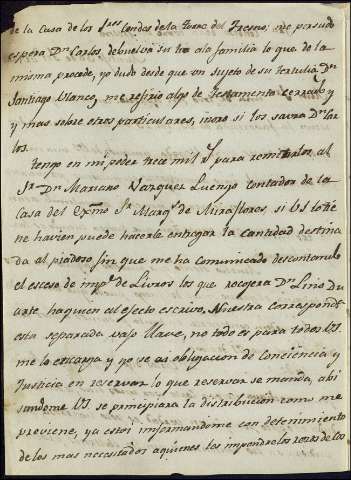 de la Casa de los S.res Condes de la Torre del Fresno: me persuado
espera Dn Carlos debuelva su tia ala familia lo que de la
misma procede, yo dudo desde que un sujeto de su tertulia Dn
Santiago Blanco, me refirio algo de Testamento cerrado y
y mas sobre otros particulares, inoro si los savra Dn Car
los.
Tengo en mi poder trece mil rs para remitirlos al
Sr Dn Mariano Vazquez Luengo contador de la
Casa del Exmo Sr Marqs de Miraflores, si VS lo tie
ne havien puede hacerle entregar la cantidad destina
da al piadoso fin que me ha comunicado descontando
el esceso de impte de Livros los que recogera Dn Lino Du
arte, ha quien al efecto escrivo, Nuestra correspondª
esta separada vajo llave, no todo es para todos VS
me lo encarga y yo se es obligacion de Conciencia y
Justicia en reservar lo que reservar se manda, abi
sandome VS. se principiara la distribucion como me
previene, ya estoi informandome con detenimiento
de los mas necesitados aquienes les impondre los rezos de los